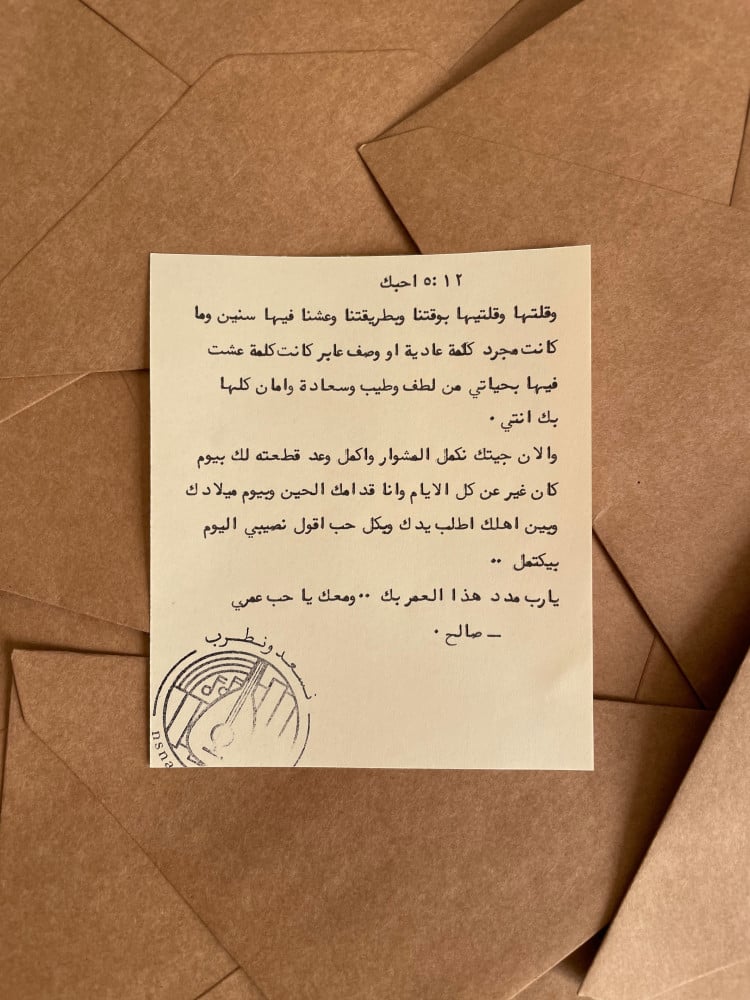 ٥:١٢ احبك
وقلتها وقلتيها بوقتنا وبطريقتنا وعشنا فيها سنين وما
كانت مجرد كلمة عادية او وصف عابر كانت كلمة عشت
فيها بحياتي من لطف وطيب وسعادة وامان كلها
بك انتي .
والان جيتك نكمل المشوار واكمل وعد قطعته لك بيوم
كان غير عن كل الايام وانا قدامك الحين وبيوم ميلادك
وبين اهلك اطلب يدك وبكل حب اقول نصيبي اليوم
بيكتمل ..
يارب مدد هذا العمر بك .. ومعك يا حب عمري
ــ صالح .
نسعد ونطرب
nsna